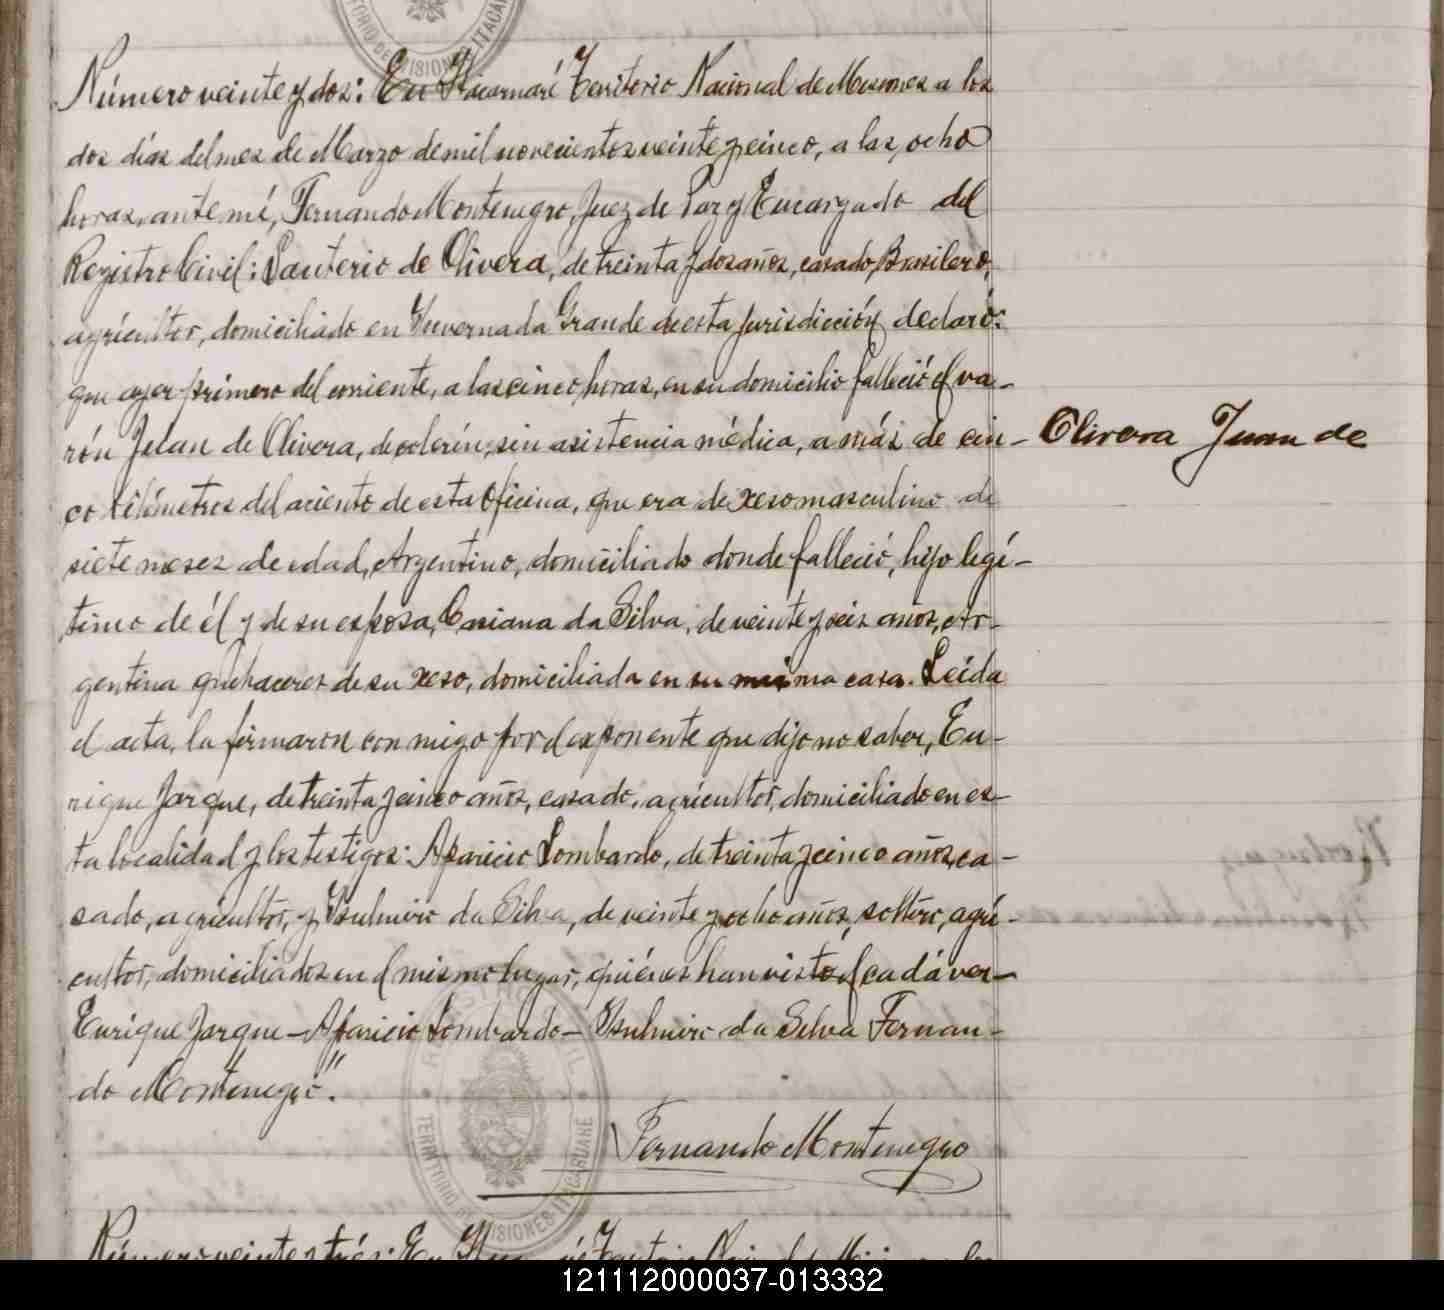 Número veinte y dos: En Itacaruaré Territorio Nacional de Misiones a los
dos días del mes de Marzo de mil novecientos veinte y cinco, a las ocho
horas, ante mí, Fernando Montenegro, Juez de Paz y Encargado del
Registro Civil: de Olivera, de treinta y dos años, casado, Brasilero,
agricultor, domiciliado en Invernada Grande de esta jurisdicción, declaró:
que ayer primero del corriente, a las cinco horas, en su domicilio falleció el va-
rón Juan de Olivera, de colerín, sin asistencia médica, a más de cin-
co kilómetros del aciento de esta Oficina, que era de xeso masculino de
siete meses de edad, Argentino, domiciliado donde falleció, hijo legí-
timo de él y de su esposa, da Silva, de veinte y seis años, Ar-
gentina quehaceres de su xeso, domiciliada en su misma casa. Leída
el acta, la firmaron conmigo por el exponente que dijo no saber, En-
rique Jarque, de treinta y cinco años, casado, agricultor, domiciliado en es-
ta localidad y los testigos: Aparicio Lombardo, de treinta y cinco años, ca-
sado, agricultor, y da Silva, de veinte y ocho años, soltero, agri-
cultor, domiciliados en el mismo lugar, quiénes han visto el cadáver-
Enrique Jarque - Aparicio Lombardo - da Silva Fernan-
do Montenegro".
Fernando Montenegro
Olivera Juan de
REGISTRO CIVIL
TERRITORIO DE MISIONES ITACARUARÉ
121112000037-013332